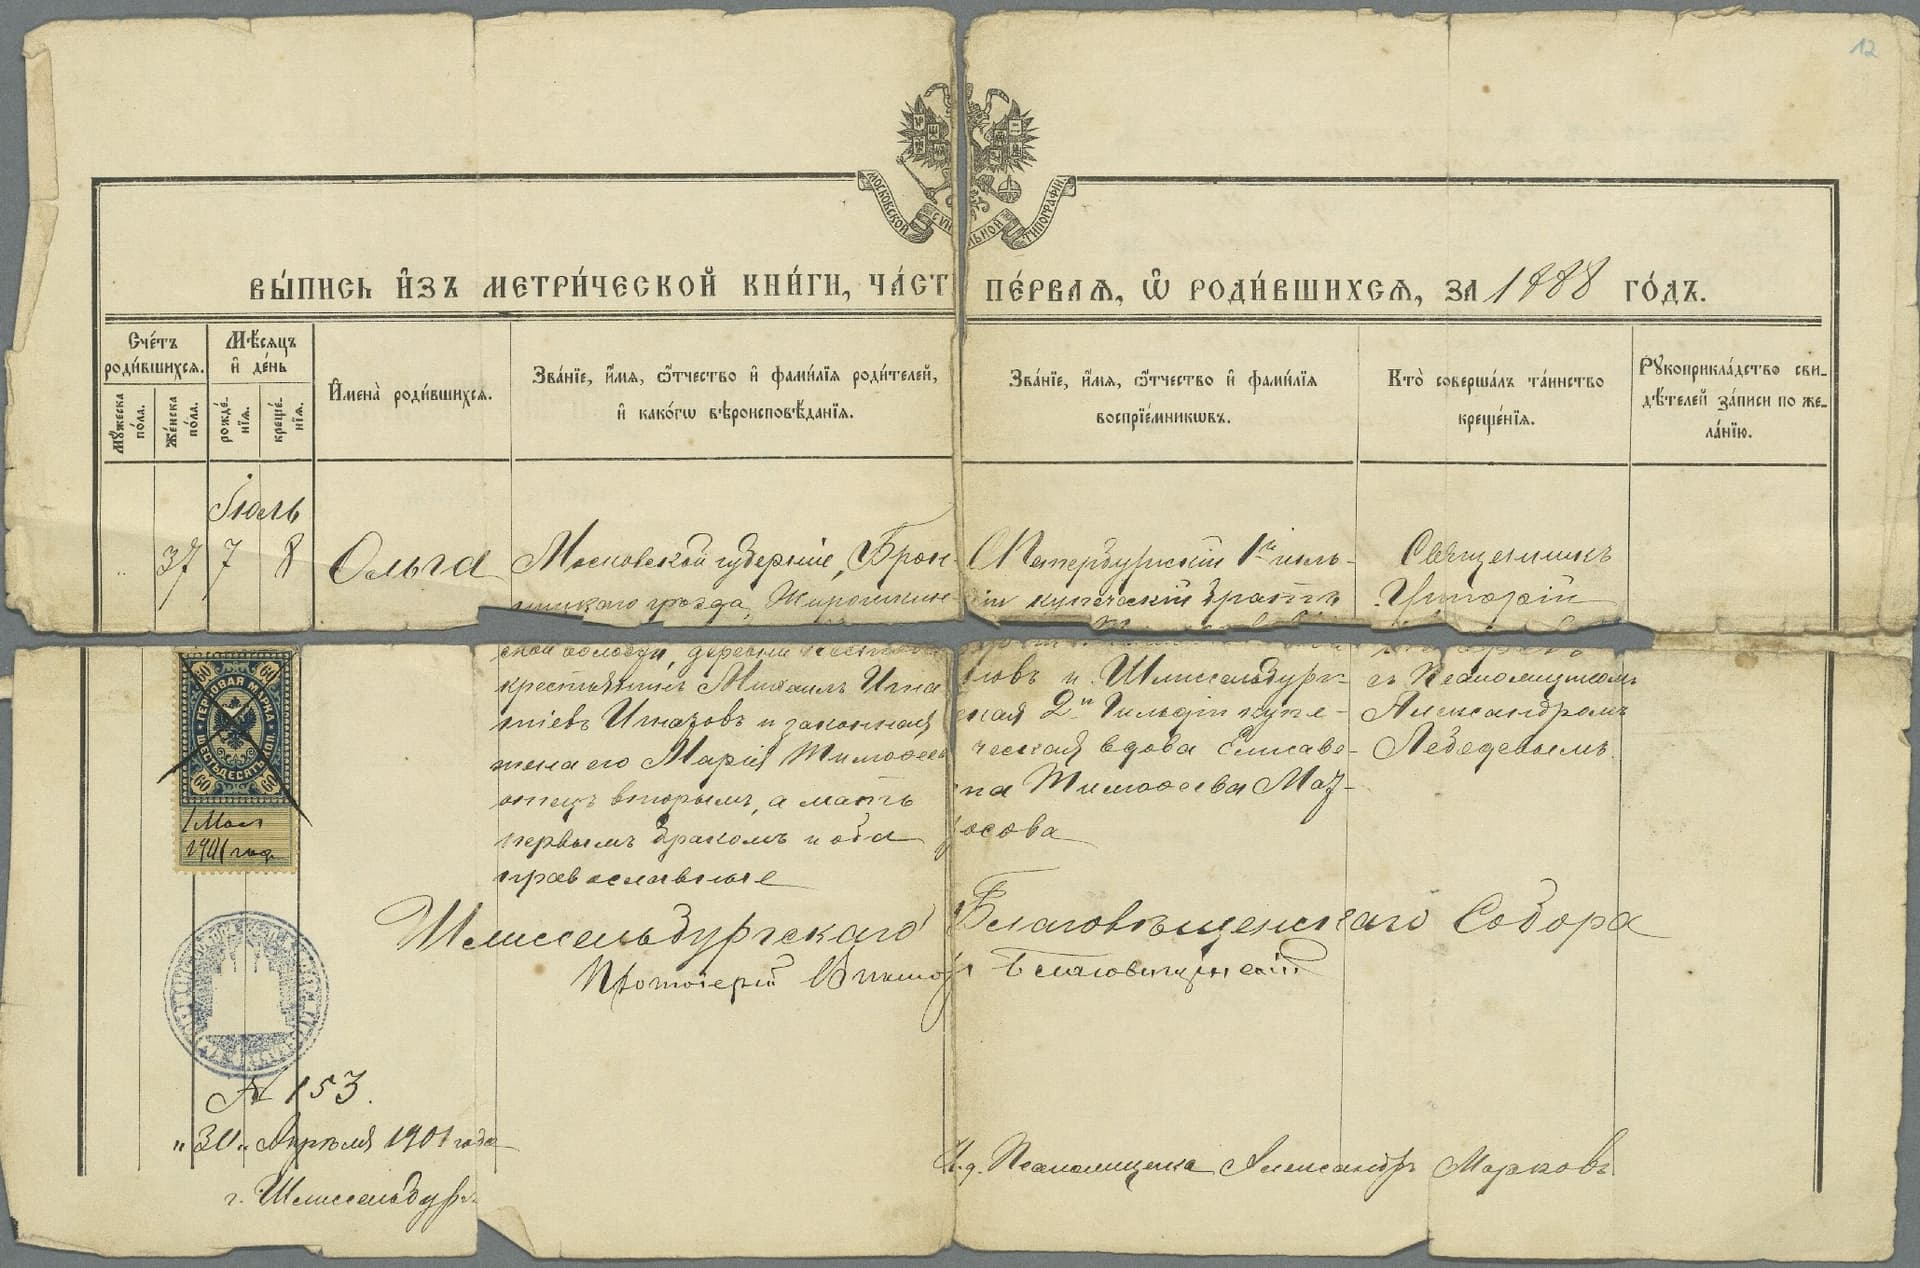 12
МОСКОВСКОЙ СУНОДАЛЬНОЙ ТИПОГРАФІИ
ВЫ́ПИСЬ И҆ЗЪ МЕТРИ́ЧЕСКОЙ КНИ́ГИ, ЧА́СТЬ ПЕ́РВАѦ, Ѽ РОДИ́ВШИХСѦ, ЗА 1888 ГО́ДЪ.
Сче́тъ роди́вшихсѧ.
Мꙋ́жеска по́ла.
Же́нска по́ла.
Мѣ́сѧцъ и҆ де́нь
рожде́нїѧ.
креще́нїѧ.
И҆мена̀ роди́вшихсѧ.
Зва́нїе, и҆́мѧ, ѻ҆́тчество и҆ фами́лїѧ роди́телей,
и҆ како́гѡ вѣроисповѣ́данїѧ.
Зва́нїе, и҆́мѧ, ѻ҆́тчество и҆ фами́лїѧ
воспрїе́мникѡвъ.
Кто̀ соверша́лъ та́инство
креще́нїѧ.
Рꙋкоприкла́дство сви-
дѣ́телей за́писи по же-
ла́нїю.
Іюль
37 7 8
Ольга
Московской губерніи, Брон-
ницкаго уѣзда, Жирошкин-
ской волости, деревни
крестьянинъ Михаилъ Игна
тіевъ Игнатовъ и законная
жена его Марія Тимофеев
отецъ вторымъ, а мать
первымъ бракомъ и оба
православные
СПетербургскій 1й гиль-
діи купеческій братъ
овъ и Шлиссельбург-
ская 2й Гильдіи купе-
ческая вдова Елисаве-
та Тимофеева Мор-
осова
Священникъ
Григорій
съ Псаломщикомъ
Александромъ
Лебедевымъ.
ГЕРБОВАЯ МАРКА
ШЕСТЬДЕСЯТЬ КОП.
60 60
60 60
1 Мая
1901 год
Шлиссельбургскаго Благовѣщенскаго Собора
Протоіерей Викторъ Благовѣщенскій
№ 153.
"30" Апрѣля 1901 года
г. Шлиссельбургъ
И. д. Псаломщика Александръ Марковъ